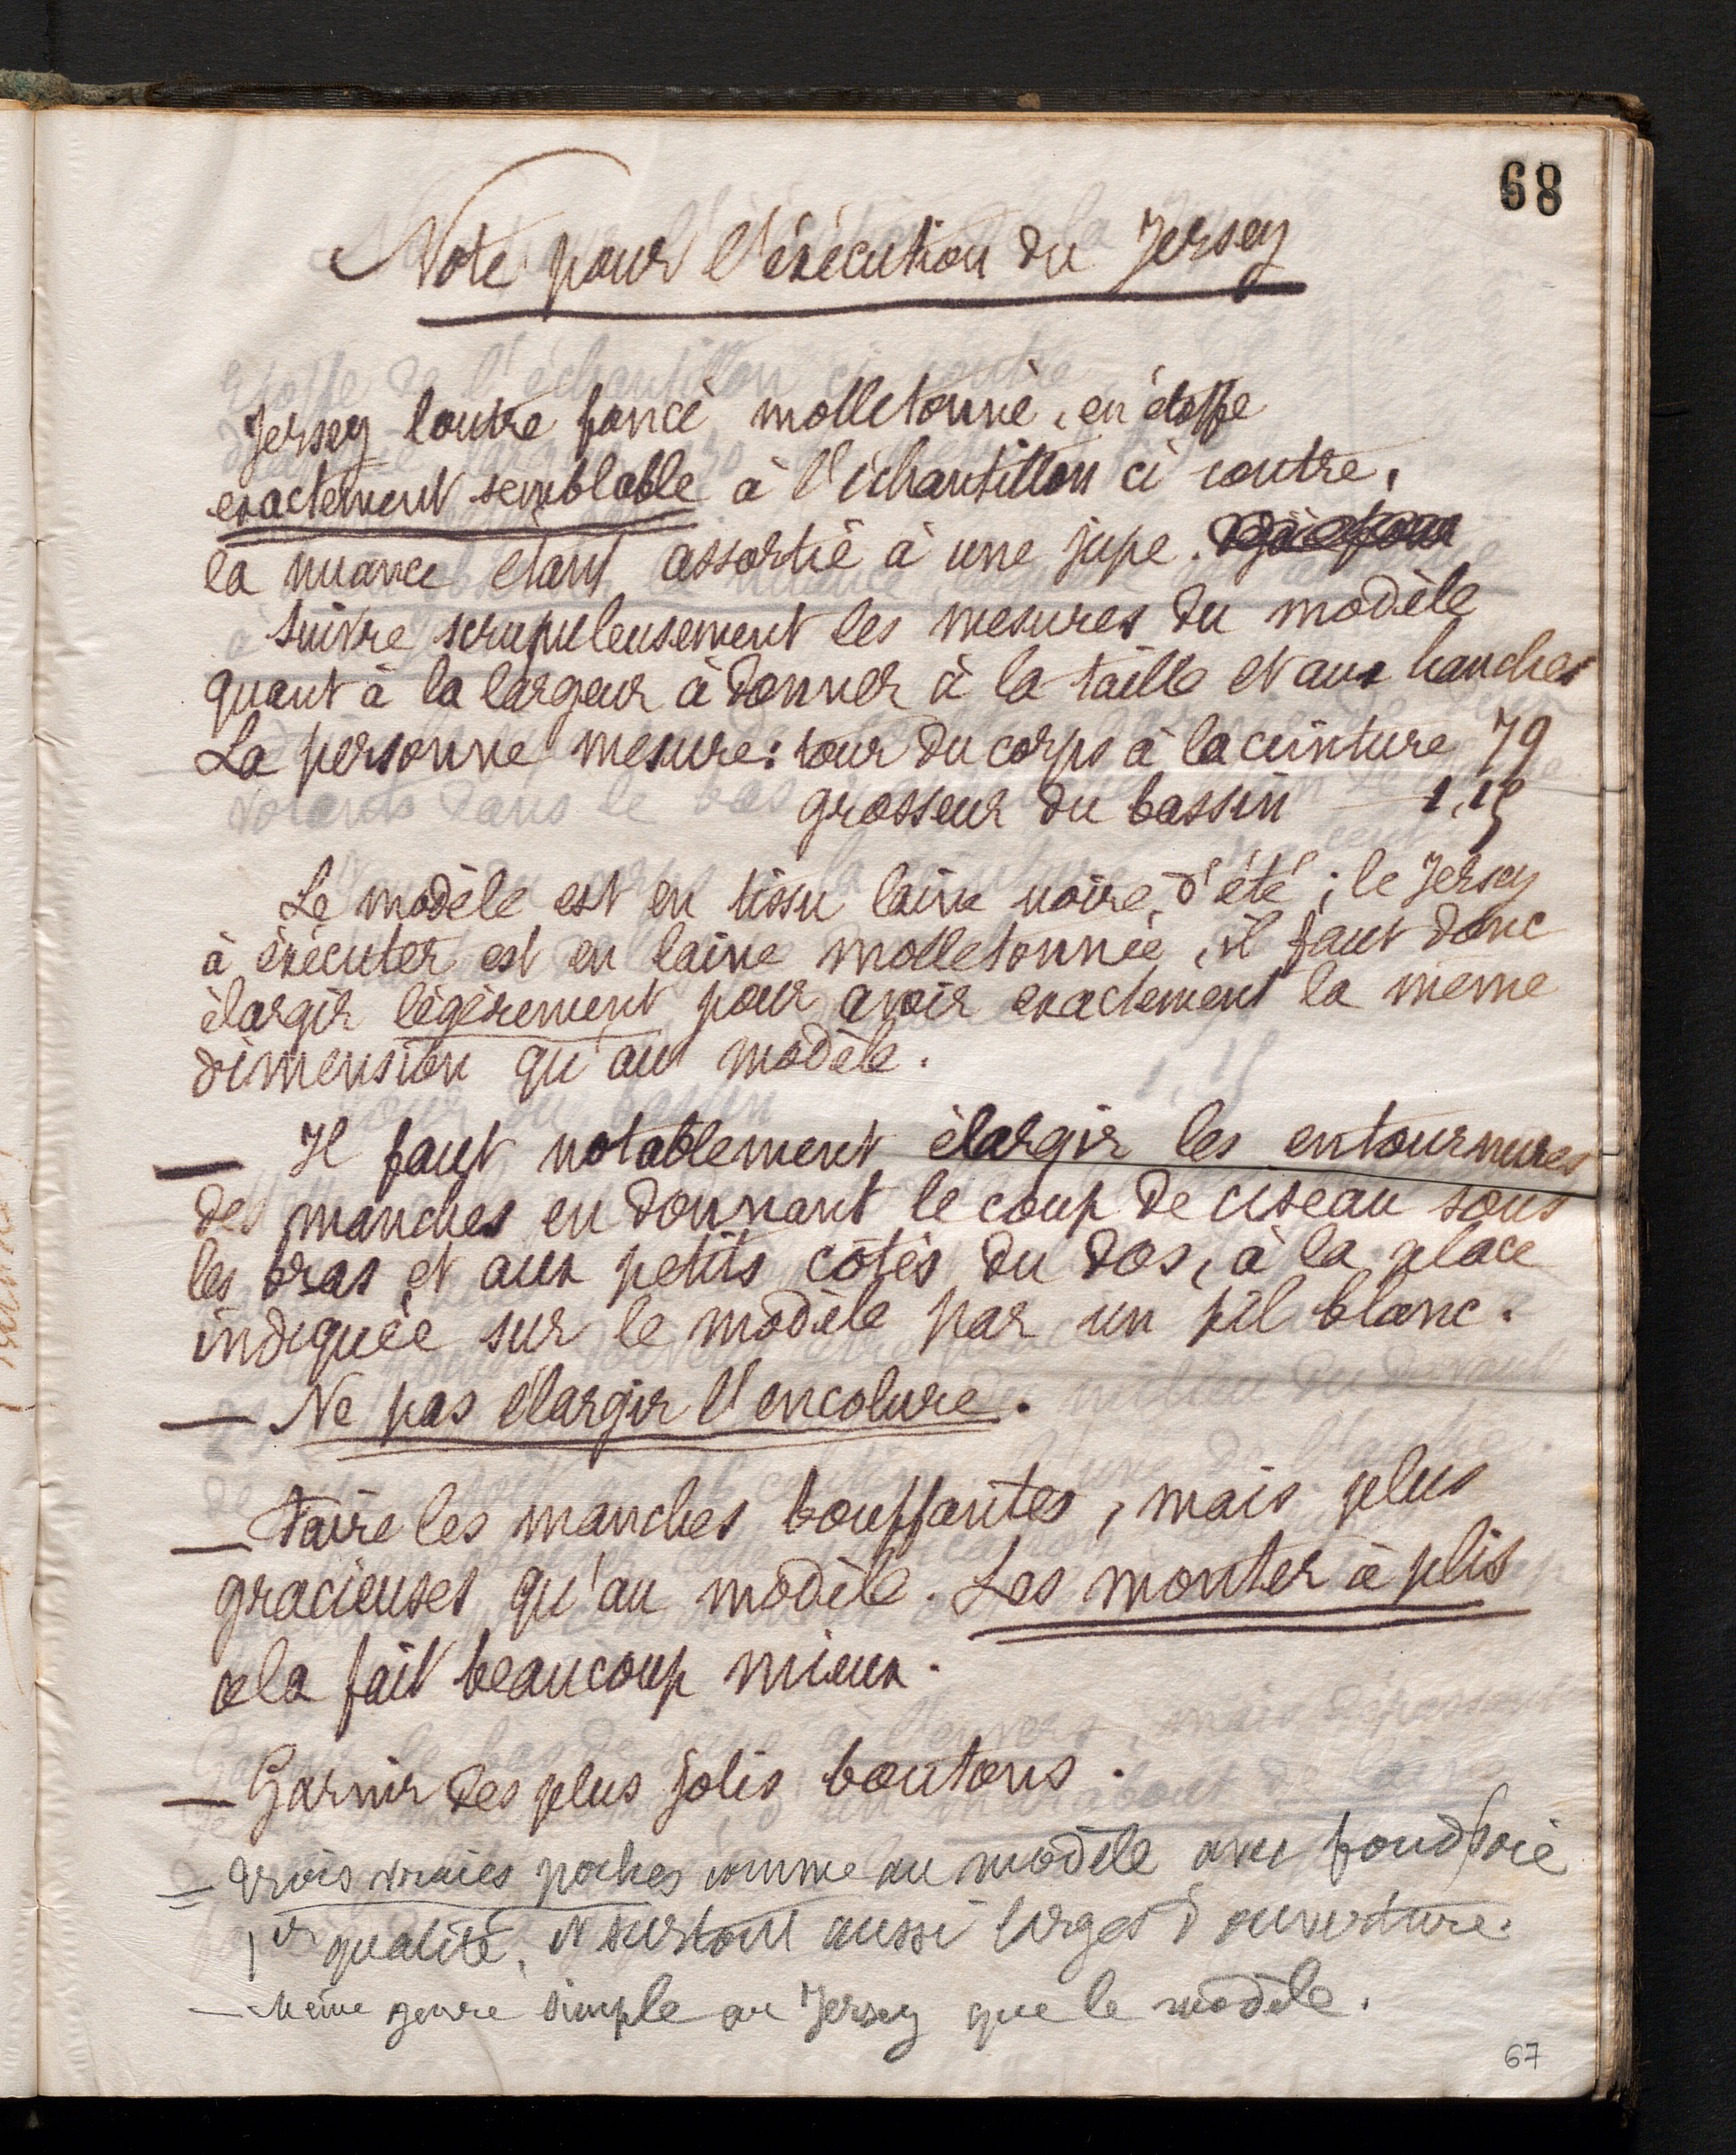 68
Note pour l'exécution du Jersey
Jersey loutre foncé molletonné, en étoffe
exactement semblable à l'échantillon ci contre,
la nuance étant assortie à une jupe.
Suivre scrupuleusement les mesures du modèle
quant à la largeur à donner à la taille et aux hanches
La personne mesure: tour du corps à la ceinture 79
grosseur du bassin 1,15
Le modèle est en tissu laine noire, d'été ; le Jersey
à exécuter est en laine molletonnée, il faut donc
élargir légèrement pour avoir exactement la même
dimension qu'au modèle.
— Il faut notablement élargir les entournures
des manches en donnant le coup de ciseau sous
les bras et aux petits côtés du dos, à la place
indiquée sur le modèle par un fil blanc.
— Ne pas élargir l'encolure.
— Faire les manches bouffantes, mais plus
gracieuses qu'au modèle. Les monter à plis
cela fait beaucoup mieux.
— Garnir des plus jolis boutons.
= trois vraies poches comme au modèle avec fond soie
1re qualité, et surtout aussi larges d'ouverture.
— Même genre simple au Jersey que le modèle.
67